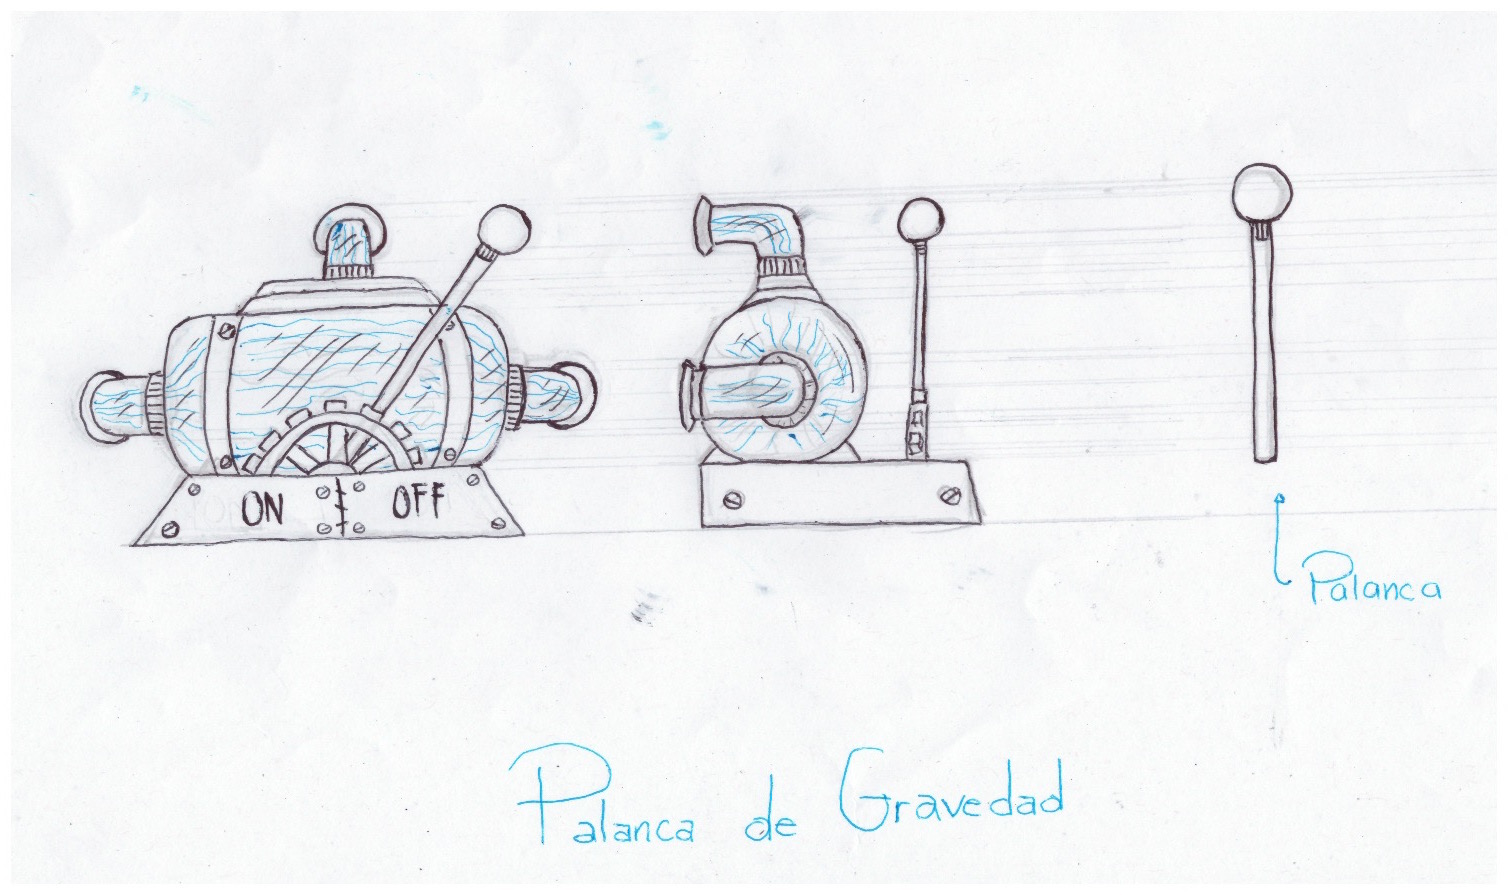 ON OFF
Palanca
Palanca de Gravedad